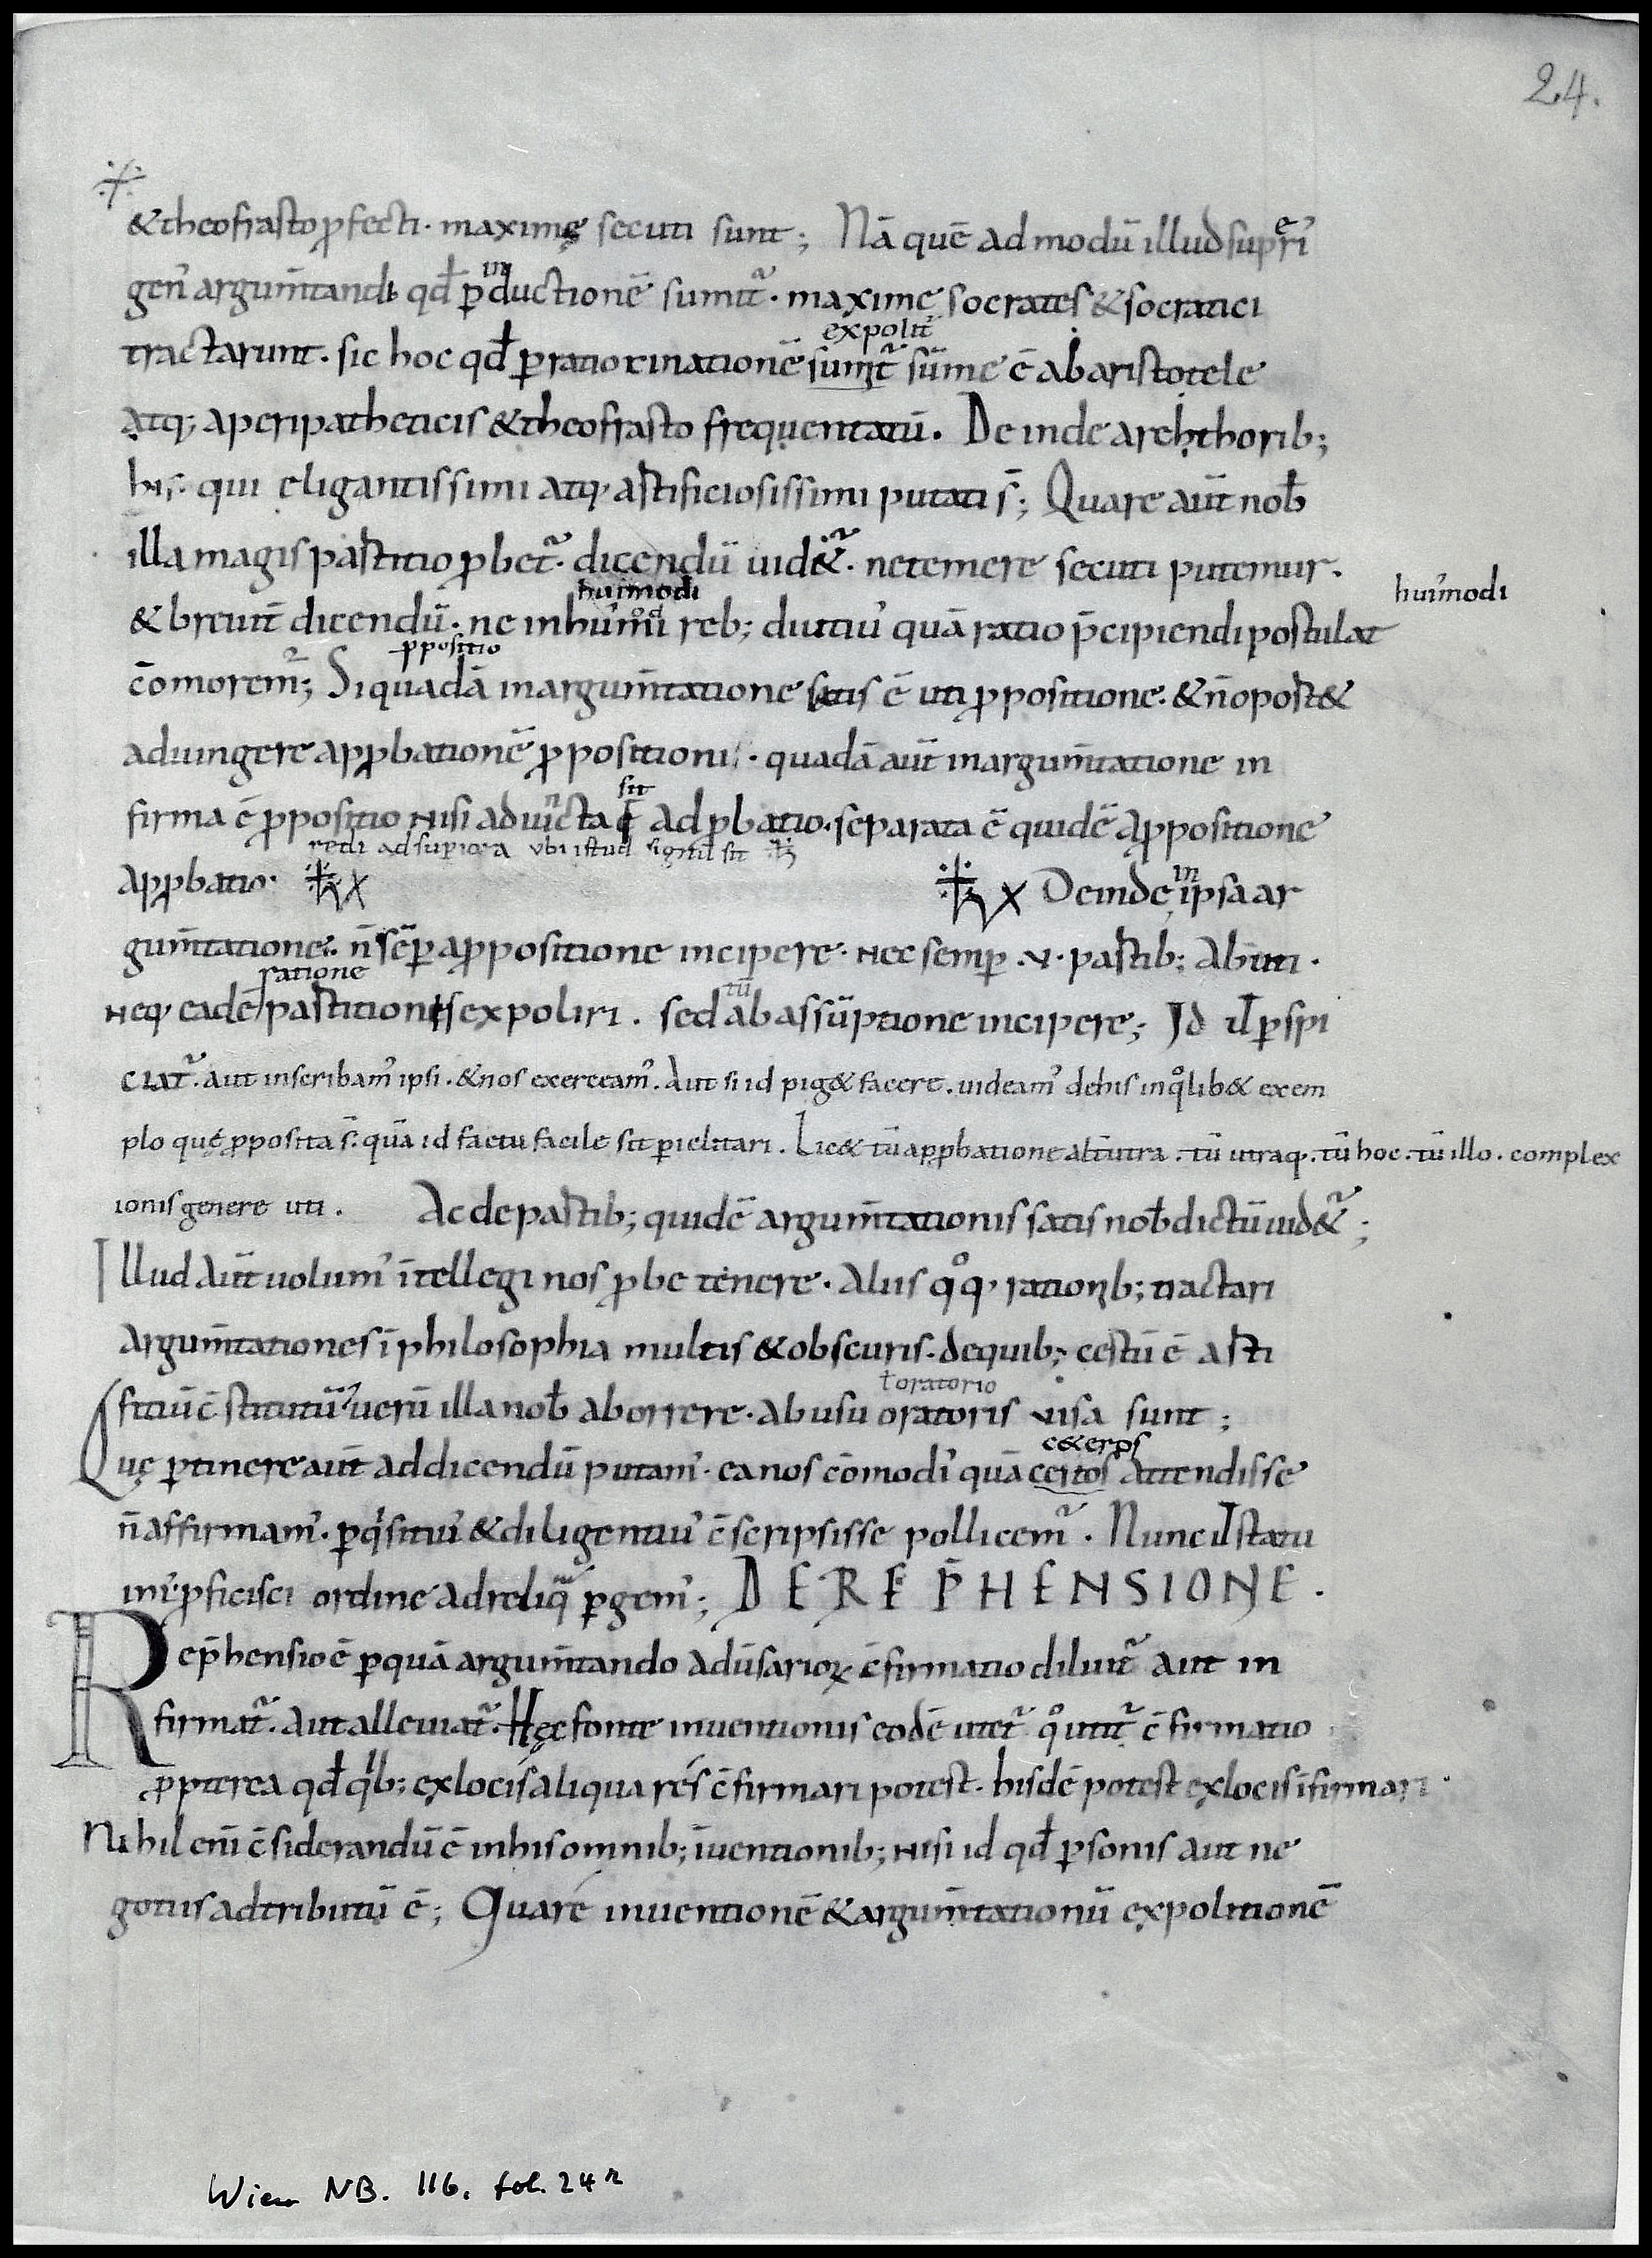 24.
& theofrasto ꝓfecti · maximę secuti sunt ; Nā quē ad modū illud supeři᾿
gen᾿ argum̄tandi qd̄ ꝑ inductionē sumit᷑ · maxime socrates & socratici
expolit᷑
tractarunt · sic hoc qd̄ ꝑ ratiocinationē sumit᷑ sūme ē ab aristotele
atq; a peripatheticis & theofrasto frequentatū . Deinde a rehthorib;
his · qui eligantissimi atq; artificiosissimi putati s̄ ; Quare aūt nob̄
illa magis partitio ꝓbet᷑ · dicendū uid&᷑ · ne temere secuti putemur .
huim̄odi
huim̄odi
& breuit̄ dicendū · ne in hui᾿mod̄i reb; diutiu᾿ quā ratio p̄cipiendi postulat
ꝓpositio
cōmorem᷑ ; Si quadā in argum̄tatione satis ē uti ꝓpositione · & n̄ oport&
adiungere apꝓbationē ꝓpositioni · quadā aūt in argum̄tatione in
sit
firma ē ꝓpositio nisi adiuncta ad ꝓbatio · separata ē quidē a ꝓpositione
redi ad superiora ubi istud signū sit
apꝓbatio · Deinde in ipsa ar
gum̄tatione · n̄ sēꝑ a ꝓpositione incipere · nec semꝑ · v · partib; abuti ·
ratione
neq; eadē partitionis expoliri . sed tū ab assūptione incipere ; Id ił ꝑspi
ciat᷑ · aut inscribam᾿ ipsi · & nos exerceam᾿ . Aut si id pig& facere . uideam᾿ de his in qͦlib& exem
plo quę ꝓposita s̄ · quā id factu facile sit ꝑiclitari . Lic& tū apꝓbatione alt̄utra . tū utraq; . tū hoc . tū illo . complex
ionis genere uti . Ac de partib; quidē argum̄tationis satis nob̄ dictū uid&᷑ ;
Illud aūt uolum᾿ ītellegi nos ꝓbe tenere . aliis qͦq; rationib; tractari
argum̄tationes ī philosophia multis & obscuris . de quib; certū ē arti
ł oratorio
fitiū c̄stitutū uerū illa nob̄ aborrere · ab usu oratoris visa sunt ;
c&eros
Quę ꝑtinere aūt ad dicendū putam᾿ · ea nos cōmodi᾿ quā certos attendisse
n̄ affirmam᾿ . ꝑq᾿sitiu᾿ & diligentiu᾿ c̄scripsisse pollicem᷑ . Nunc ił statu
im᾿ ꝓficisci ordine ad reliqͣ ꝑgem᾿ ; DE REP̄HENSIONE .
Rep̄hensio ē ꝑ quā argum̄tando adūsarioꝝ c̄firmatio diluit᷑ aut in
firmat᷑ · aut alleuiat᷑ . Hęc fonte inuentionis eodē utet᷑ qͦ utit᷑ c̄firmatio
ꝓpterea qd̄ qib; ex locis aliqua res c̄firmari potest . hisdē potest ex locis īfirmari ·
Nihil eni᾿ c̄siderandū ē in his omnib; īuentionib; nisi id qd̄ ꝑsonis aut ne
gotiis adtributū ē ; Quare inuentionē & argum̄tationū expolitionē
Wien NB. 116. fol. 24ʳ